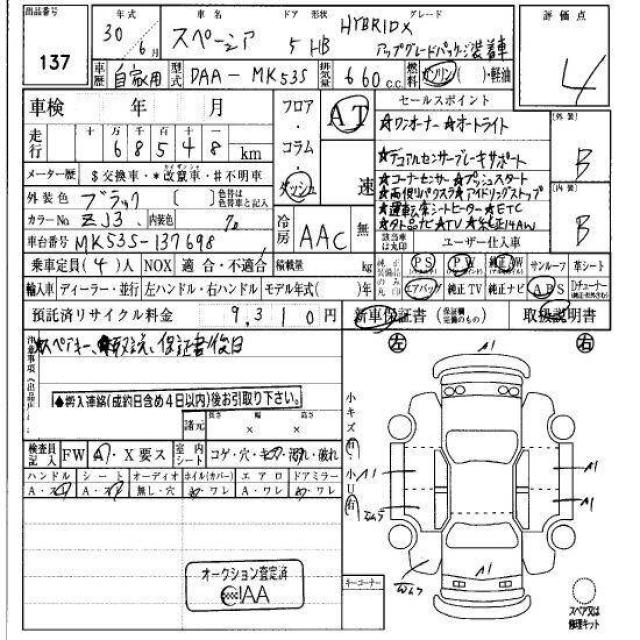 出品番号 137
年式 30年 6月
車名 スペーシア
ドア 形状 5 HB
グレード HYBRID X
アップグレードパッケージ装着車
評価点 4
車歴 自家用
型式 DAA-MK53S
排気量 660 c.c.
燃料 ガソリン( )・軽油
車検 年 月
フロア・コラム・ダッシュ
AT 速
セールスポイント
★ワンオーナー ★オートライト
★デュアルセンサーブレーキサポート
★コーナーセンサー ★プッシュスタート
★両側パワスラ ★アイドリングストップ
★運転席シートヒーター ★ETC
★社外品ナビ ★TV ★純正14AW
[外装] B
[内装] B
走行 十 万 千 百 十 一
68548 km
メーター歴 $交換車・*改竄車・#不明車
外装色 ブラック [ ] 色替は色替車と記入
カラーNo ZJ3 内装色
冷房 AAC 無
該当車は丸印 ユーザー仕入車
車台番号 MK53S-137698
乗車定員(4)人 NOX 適合・不適合 積載量 kg
純正装備品のみ丸印
PS PW 純正AW サンルーフ 革シート
エアバッグ 純正TV 純正ナビ ABS
輸入車 ディーラー・並行 左ハンドル・右ハンドル モデル年式( )年
預託済リサイクル料金 9,310円
新車保証書(保証欄完備のもの) 取扱説明書
注意事項
スペアキー、取説、保証書後日
●搬入連絡(成約日含め4日以内)後お引取り下さい。
諸元 長さ × 幅 × 高さ
検査員記入 FW A・X要ス
室内シート コゲ・穴・キズ・汚れ・破れ
ハンドル シート オーディオ ホイル(カバー) エアロ ドアミラー
A・スレ A・スレ 無し・穴 A・ワレ A・ワレ A・ワレ
オークション査定済
CIAA
左 右
小キズ有
小U有
A1
A1
A1
A1
A1
キーコーナー
スペア又は修理キット